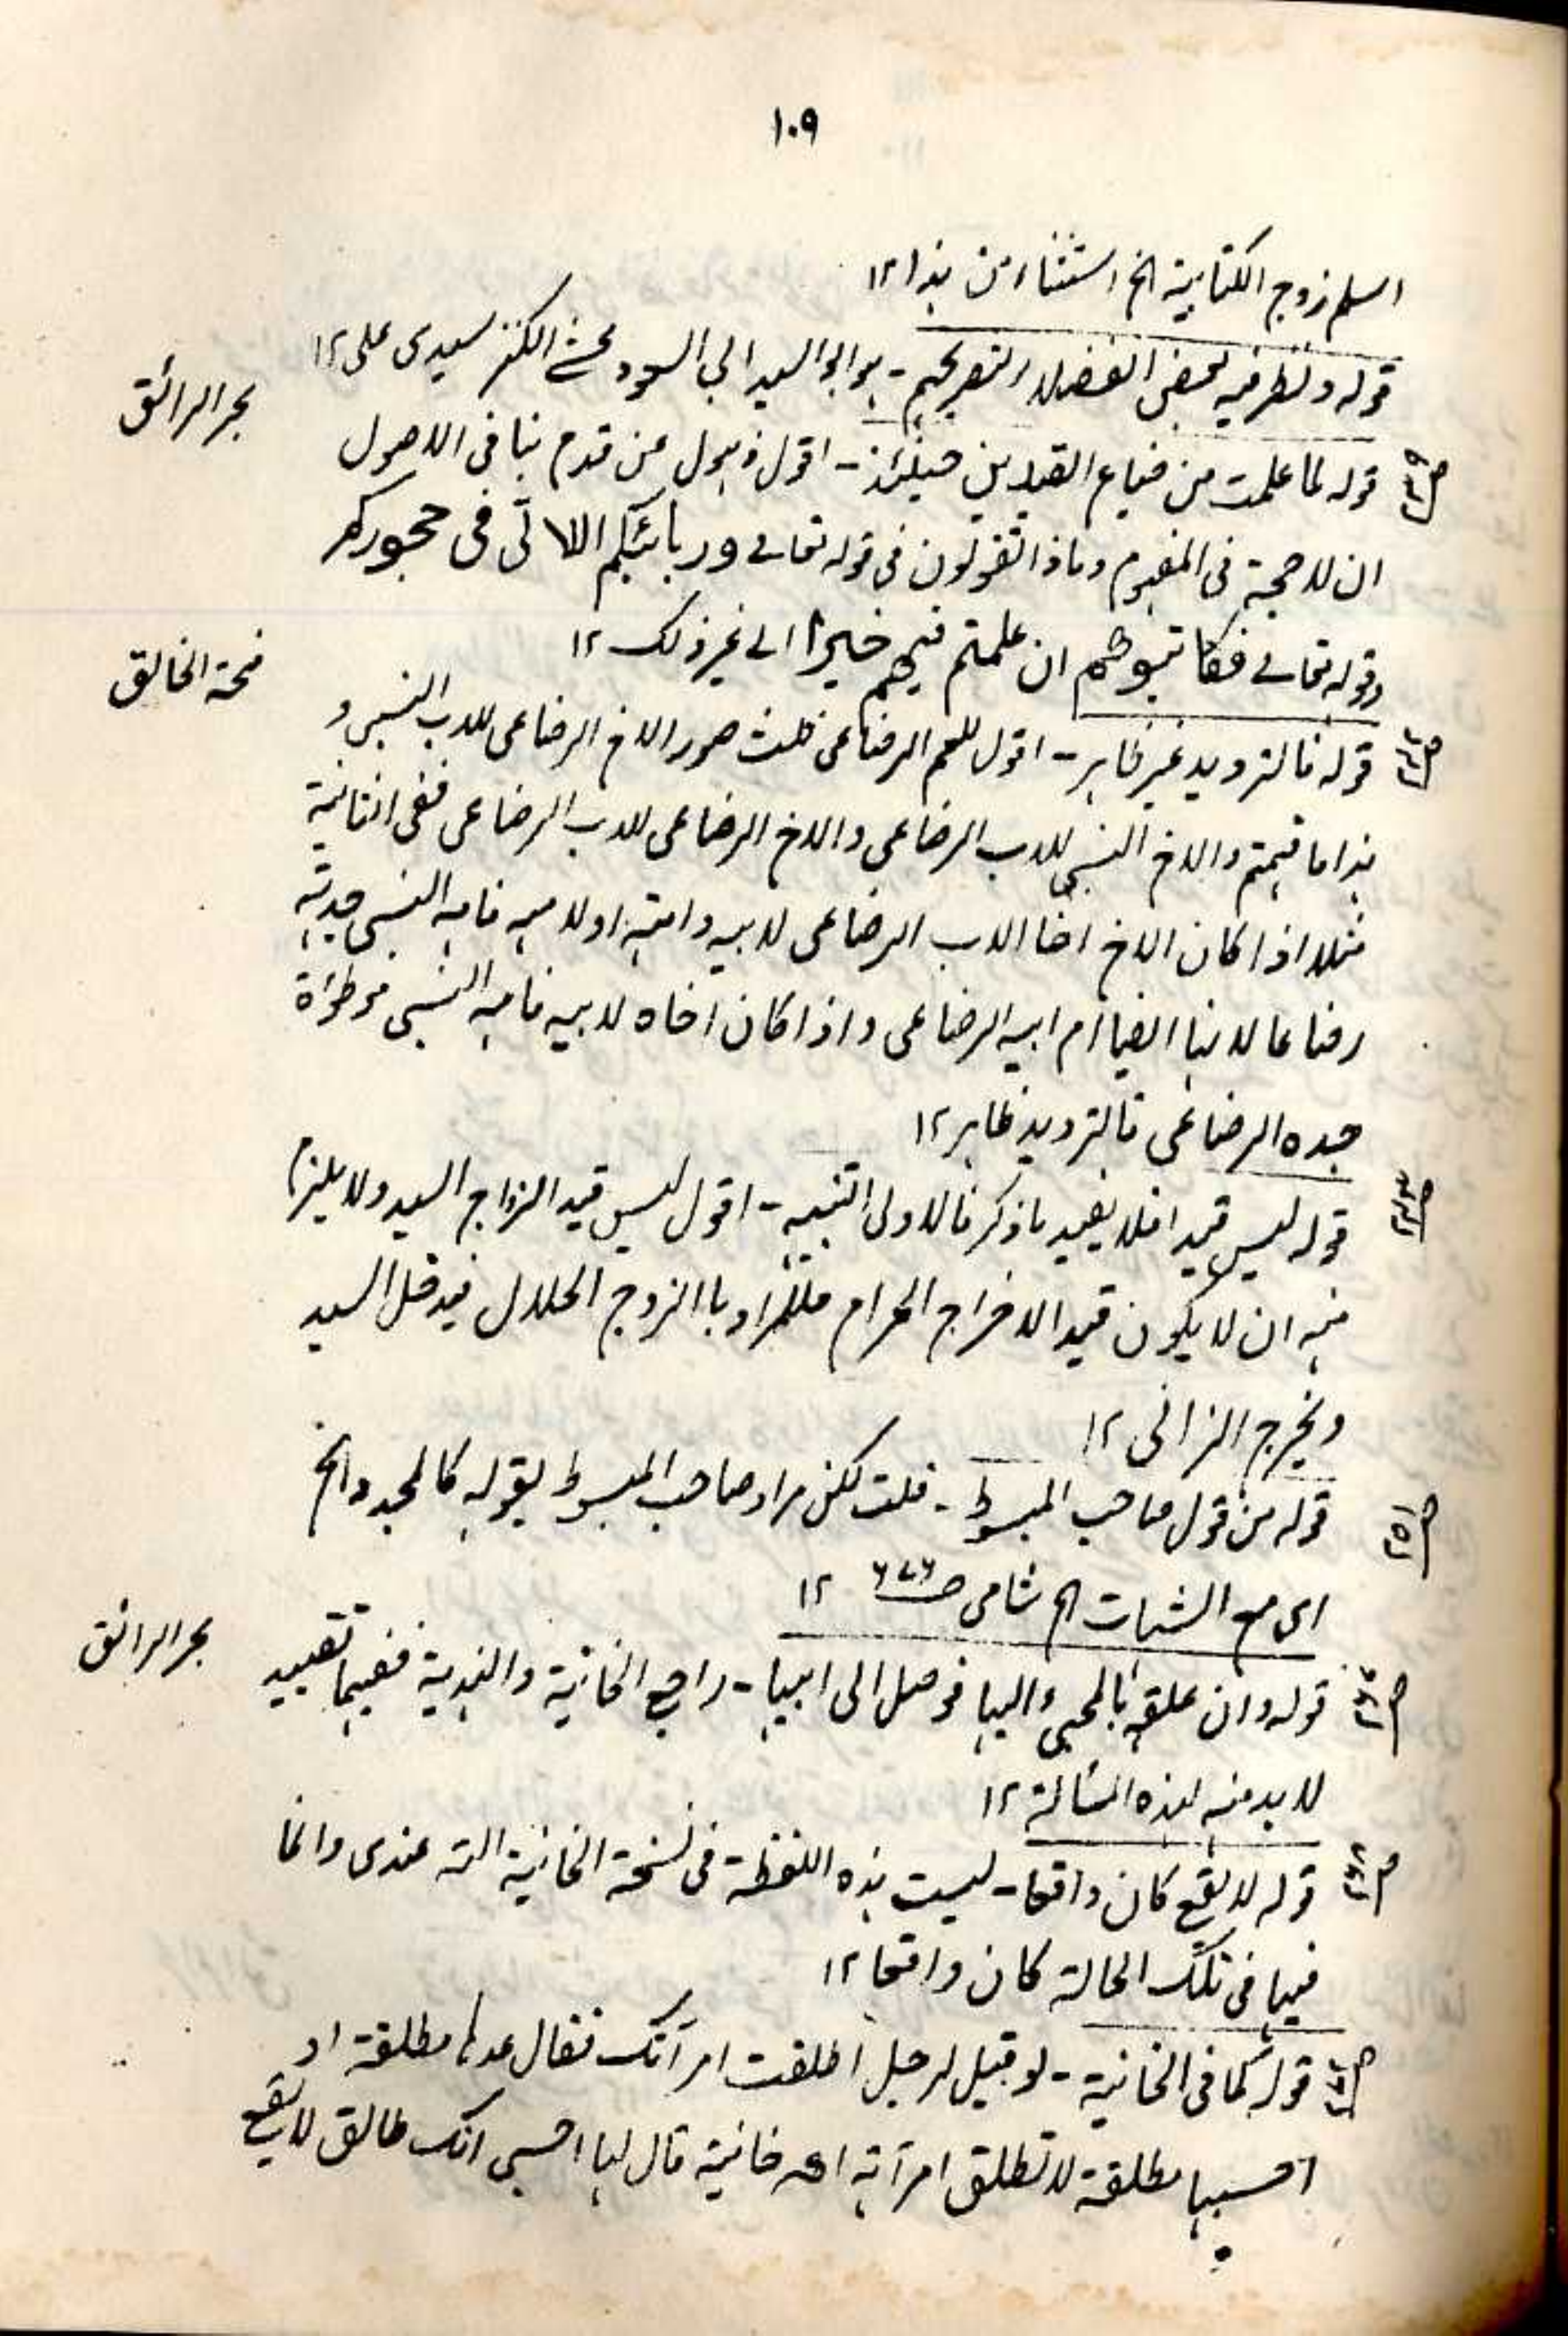 ١٠٩
اسلم زوج الكتابية الخ استثناء من هذا ١٢
قوله ونظر فيه بعض الفضلاء - هو ابو السيد ابي السعود محشى الكنز سيدى على ١٢
بحر الرائق
قوله لما علمت من ضياع القيدين حينئذ - اقول ذهول عن قدم نبا فى الاصول
ان لا حجة فى المفهوم وماذا تقولون فى قوله تعالى وربائبكم اللاتى فى حجوركم
وقوله تعالى فكاتبوهم ان علمتم فيهم خيرا الى غير ذلك ١٢
منحة الخالق
قوله فالترديد غير ظاهر - اقول للعم الرضاعى ثلث صور الاخ الرضاعى للاب النسبى و
هذا ما فهمتم والاخ النسبى للاب الرضاعى والاخ الرضاعى للاب الرضاعى ففى الثانية
مثلا اذا كان الاخ اخا الاب الرضاعى لابيه وامه او لامه فامه النسبى جدته
رضاعا لانها ايضا ام ابيه الرضاعى واذا كان اخاه لابيه فامه النسبى موطؤاة
جده الرضاعى فالترديد ظاهر ١٢
قوله ليس قيدا فلا يفيد ما ذكر فالاولى التنبيه - اقول ليس قيد الزواج السيد ولا يلزم
منه ان لا يكون قيد الاخراج الحرام فالمراد بالزوج الحلال فيدخل السيد
ويخرج الزانى ١٢
ص ٢٥١
قوله من قول صاحب المبسوط - قلت لكن مراد صاحب المبسوط بقوله كالمجدد الخ
اى مع الشبهات الخ شامى ص ٦٧٦ ١٢
بحر الرائق
قوله وان علقه بالمجئ اليها فوصل الى ابيها - راجع الخانية والهندية ففيهما تقييد
لا بد منه لهذه المسألة ١٢
قوله لا يقع كان واقعا - ليست هذه اللفظة فى نسخة الخانية التى عندى وانما
فيها فى تلك الحالة كان واقعا ١٢
قوله كما فى الخانية - لو قيل لرجل اطلقت امرأتك فقال عدها مطلقة او
احسبها مطلقة لا تطلق امرأته اھ خانية قال لها احسبى انك طالق لا يقع